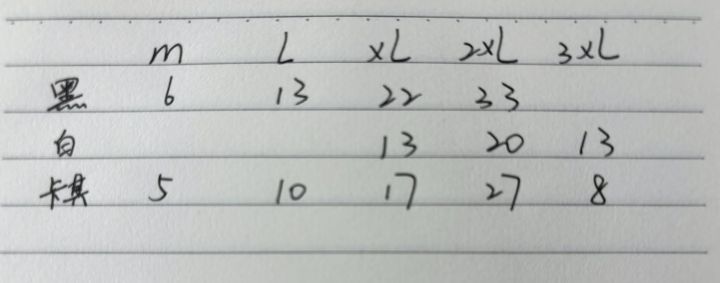 m L XL 2XL 3XL
黑 6 13 22 33
白 13 20 13
卡其 5 10 17 27 8